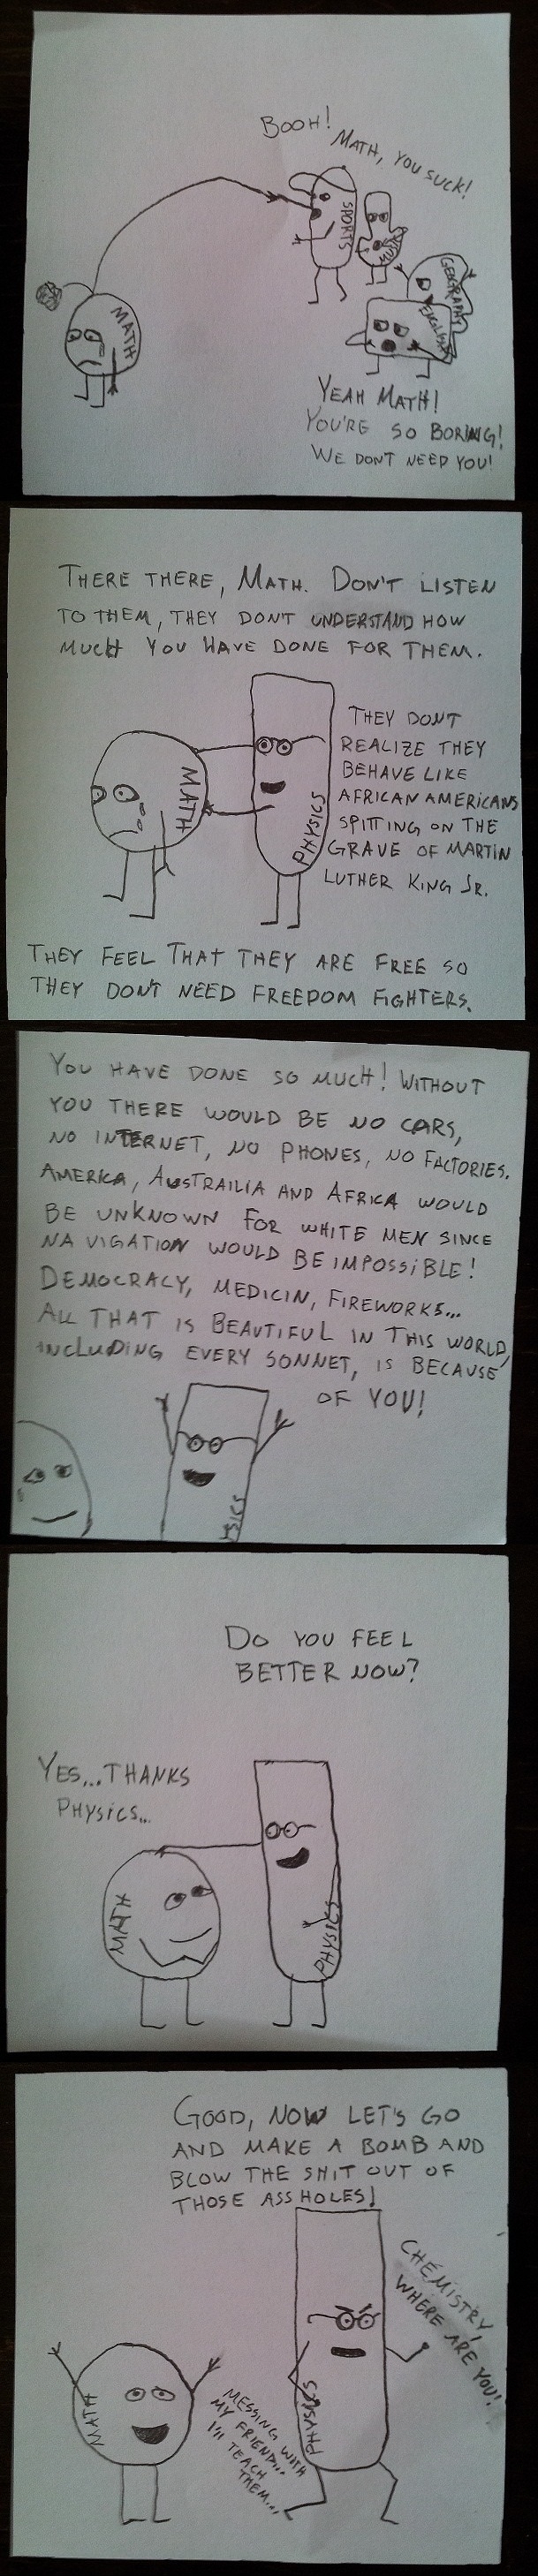 BOOH!
MATH, YOU SUCK!
SPORTS
MUSIC
GEOGRAPHY
ENGLISH
MATH
YEAH MATH!
YOU'RE SO BORING!
WE DONT NEED YOU!
THERE THERE, MATH. DON'T LISTEN
TO THEM, THEY DON'T UNDERSTAND HOW
MUCH YOU HAVE DONE FOR THEM.
THEY DONT
REALIZE THEY
BEHAVE LIKE
AFRICAN AMERICANS
SPITTING ON THE
GRAVE OF MARTIN
LUTHER KING JR.
MATH
PHYSICS
THEY FEEL THAT THEY ARE FREE SO
THEY DON'T NEED FREEDOM FIGHTERS.
YOU HAVE DONE SO MUCH! WITHOUT
YOU THERE WOULD BE NO CARS,
NO INTERNET, NO PHONES, NO FACTORIES.
AMERICA, AUSTRAILIA AND AFRICA WOULD
BE UNKNOWN FOR WHITE MEN SINCE
NAVIGATION WOULD BE IMPOSSIBLE!
DEMOCRACY, MEDICIN, FIREWORKS...
ALL THAT IS BEAUTIFUL IN THIS WORLD,
INCLUDING EVERY SONNET, IS BECAUSE
OF YOU!
SICS
DO YOU FEEL
BETTER NOW?
YES...THANKS
PHYSICS...
MATH
PHYSICS
GOOD, NOW LET'S GO
AND MAKE A BOMB AND
BLOW THE SHIT OUT OF
THOSE ASSHOLES!
CHEMISTRY,
WHERE ARE YOU!
MATH
PHYSICS
MESSING WITH
MY FRIEND...
I'll TEACH
THEM...